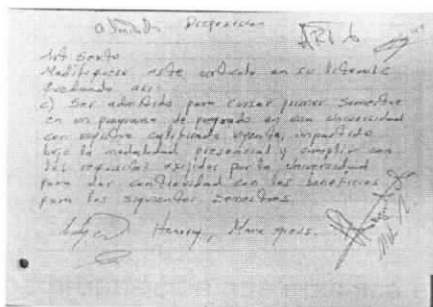 Proposición
ART 6
Art Sexto
Modifiquese este artículo en su literal c
quedando así:
c) Ser admitido para cursar primer semestre
en un programa de pregrado en una Universidad
con registro calificado vigente, impartido
bajo la modalidad presencial y cumplir con
los requisitos exijidos por la Universidad
para dar continuidad con los beneficios
para los siguientes semestres.